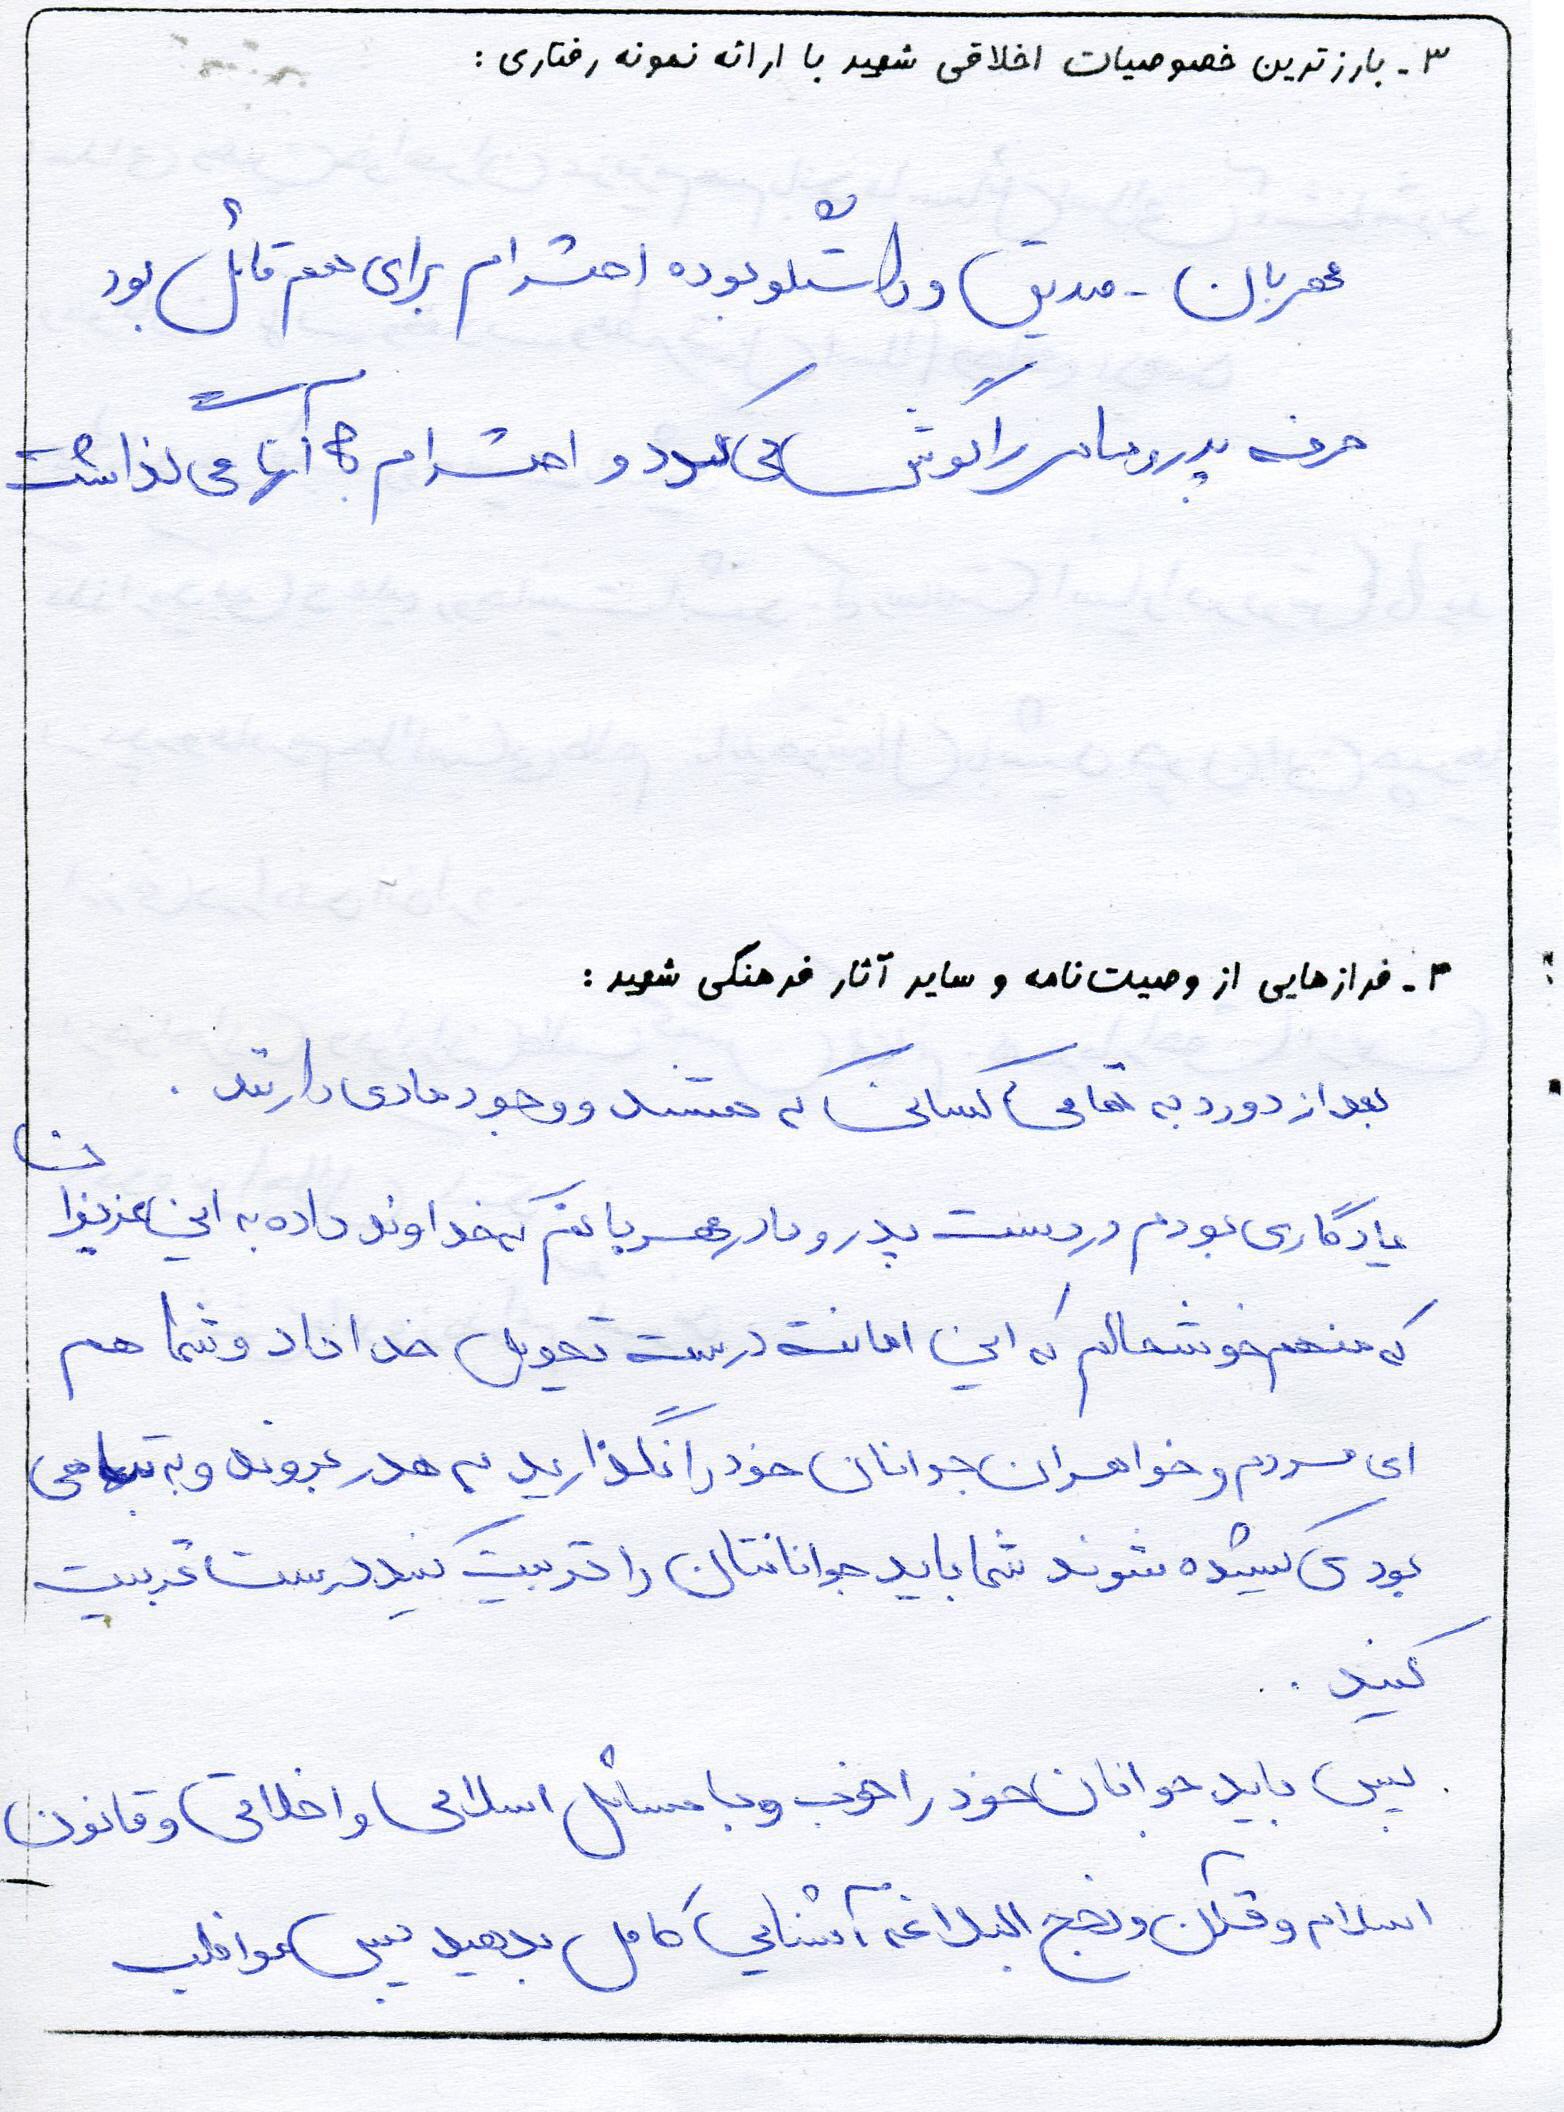 ۳- بارزترین خصوصیات اخلاقی شهید با ارائه نمونه رفتاری:
مهربان - صدیق و راستگو بوده احترام برای همه قائل بود
حرف پدر و مادر را گوش می کرد و احترام به آنها می گذاشت
۴- فرازهایی از وصیت‌نامه و سایر آثار فرهنگی شهید:
بعد از درود به تمامی کسانی که هستند و وجود مادی دارند.
یادگاری بودم در دست پدر و مادر مهربانم که خداوند داده به این عزیزان
که منهم خوشحالم که این امانت درست تحویل خدا داد و شما هم
ای مردم و خواهران جوانان خود را نگذارید به هدر بروند و به تباهی
بودی کشیده شوند شما باید جوانانتان را تربیت کنید درست تربیت
کنید.
پس باید جوانان خود را خوب و با مسائل اسلامی و اخلاقی و قانون
اسلام و قرآن و نهج البلاغه آشنایی کامل بدهید پس مواظب